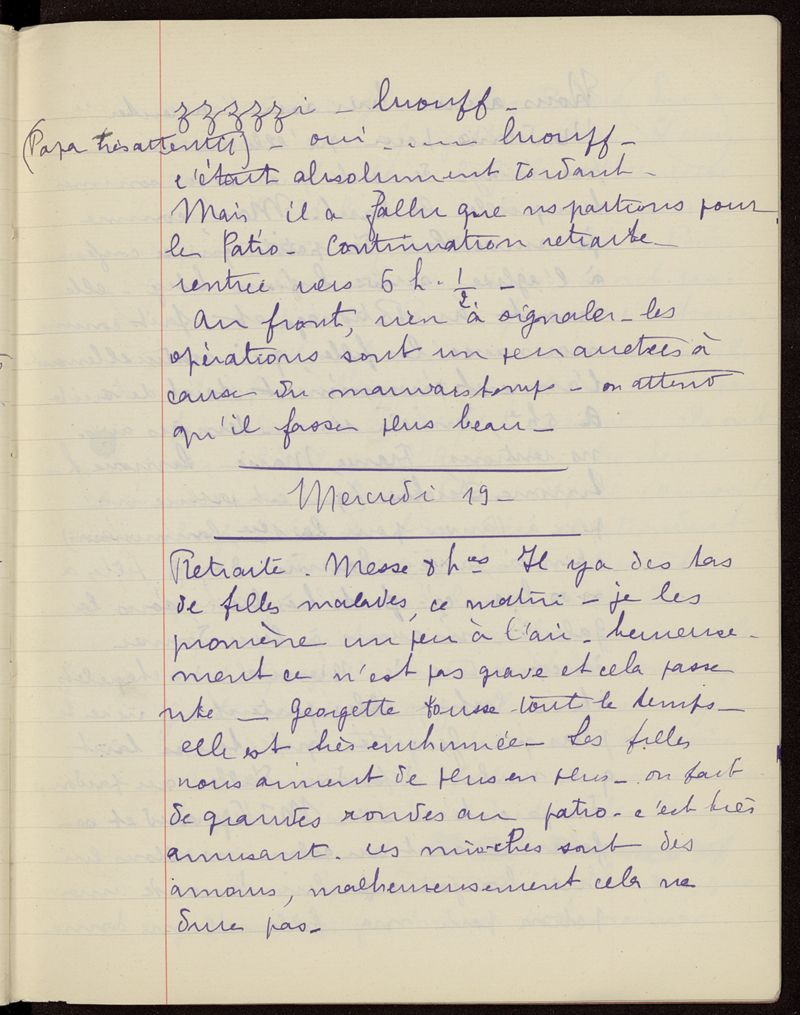 zzzzzi - brouff -
(Papa très attentif) - oui .... brouff -
c'était absolument tordant -
Mais il a fallu que ns partions pour
le Patio - Continuation retraite -
rentrée vers 6 h. 1/2 -
Au front, rien à signaler - les
opérations sont un peu arrêtées à
cause du mauvais temps - on attend
qu'il fasse plus beau -
Mercredi 19 -
Retraite. Messe 8 hes Il y a des tas
de filles malades, ce matin - je les
promène un peu à l'air - heureuse-
ment ce n'est pas grave et cela passe
vite - Georgette tousse tout le temps -
elle est très enrhumée - Les filles
nous aiment de plus en plus - on fait
de grandes rondes au patio - c'est très
amusant. Les mioches sont des
amours, malheureusement cela ne
dure pas -